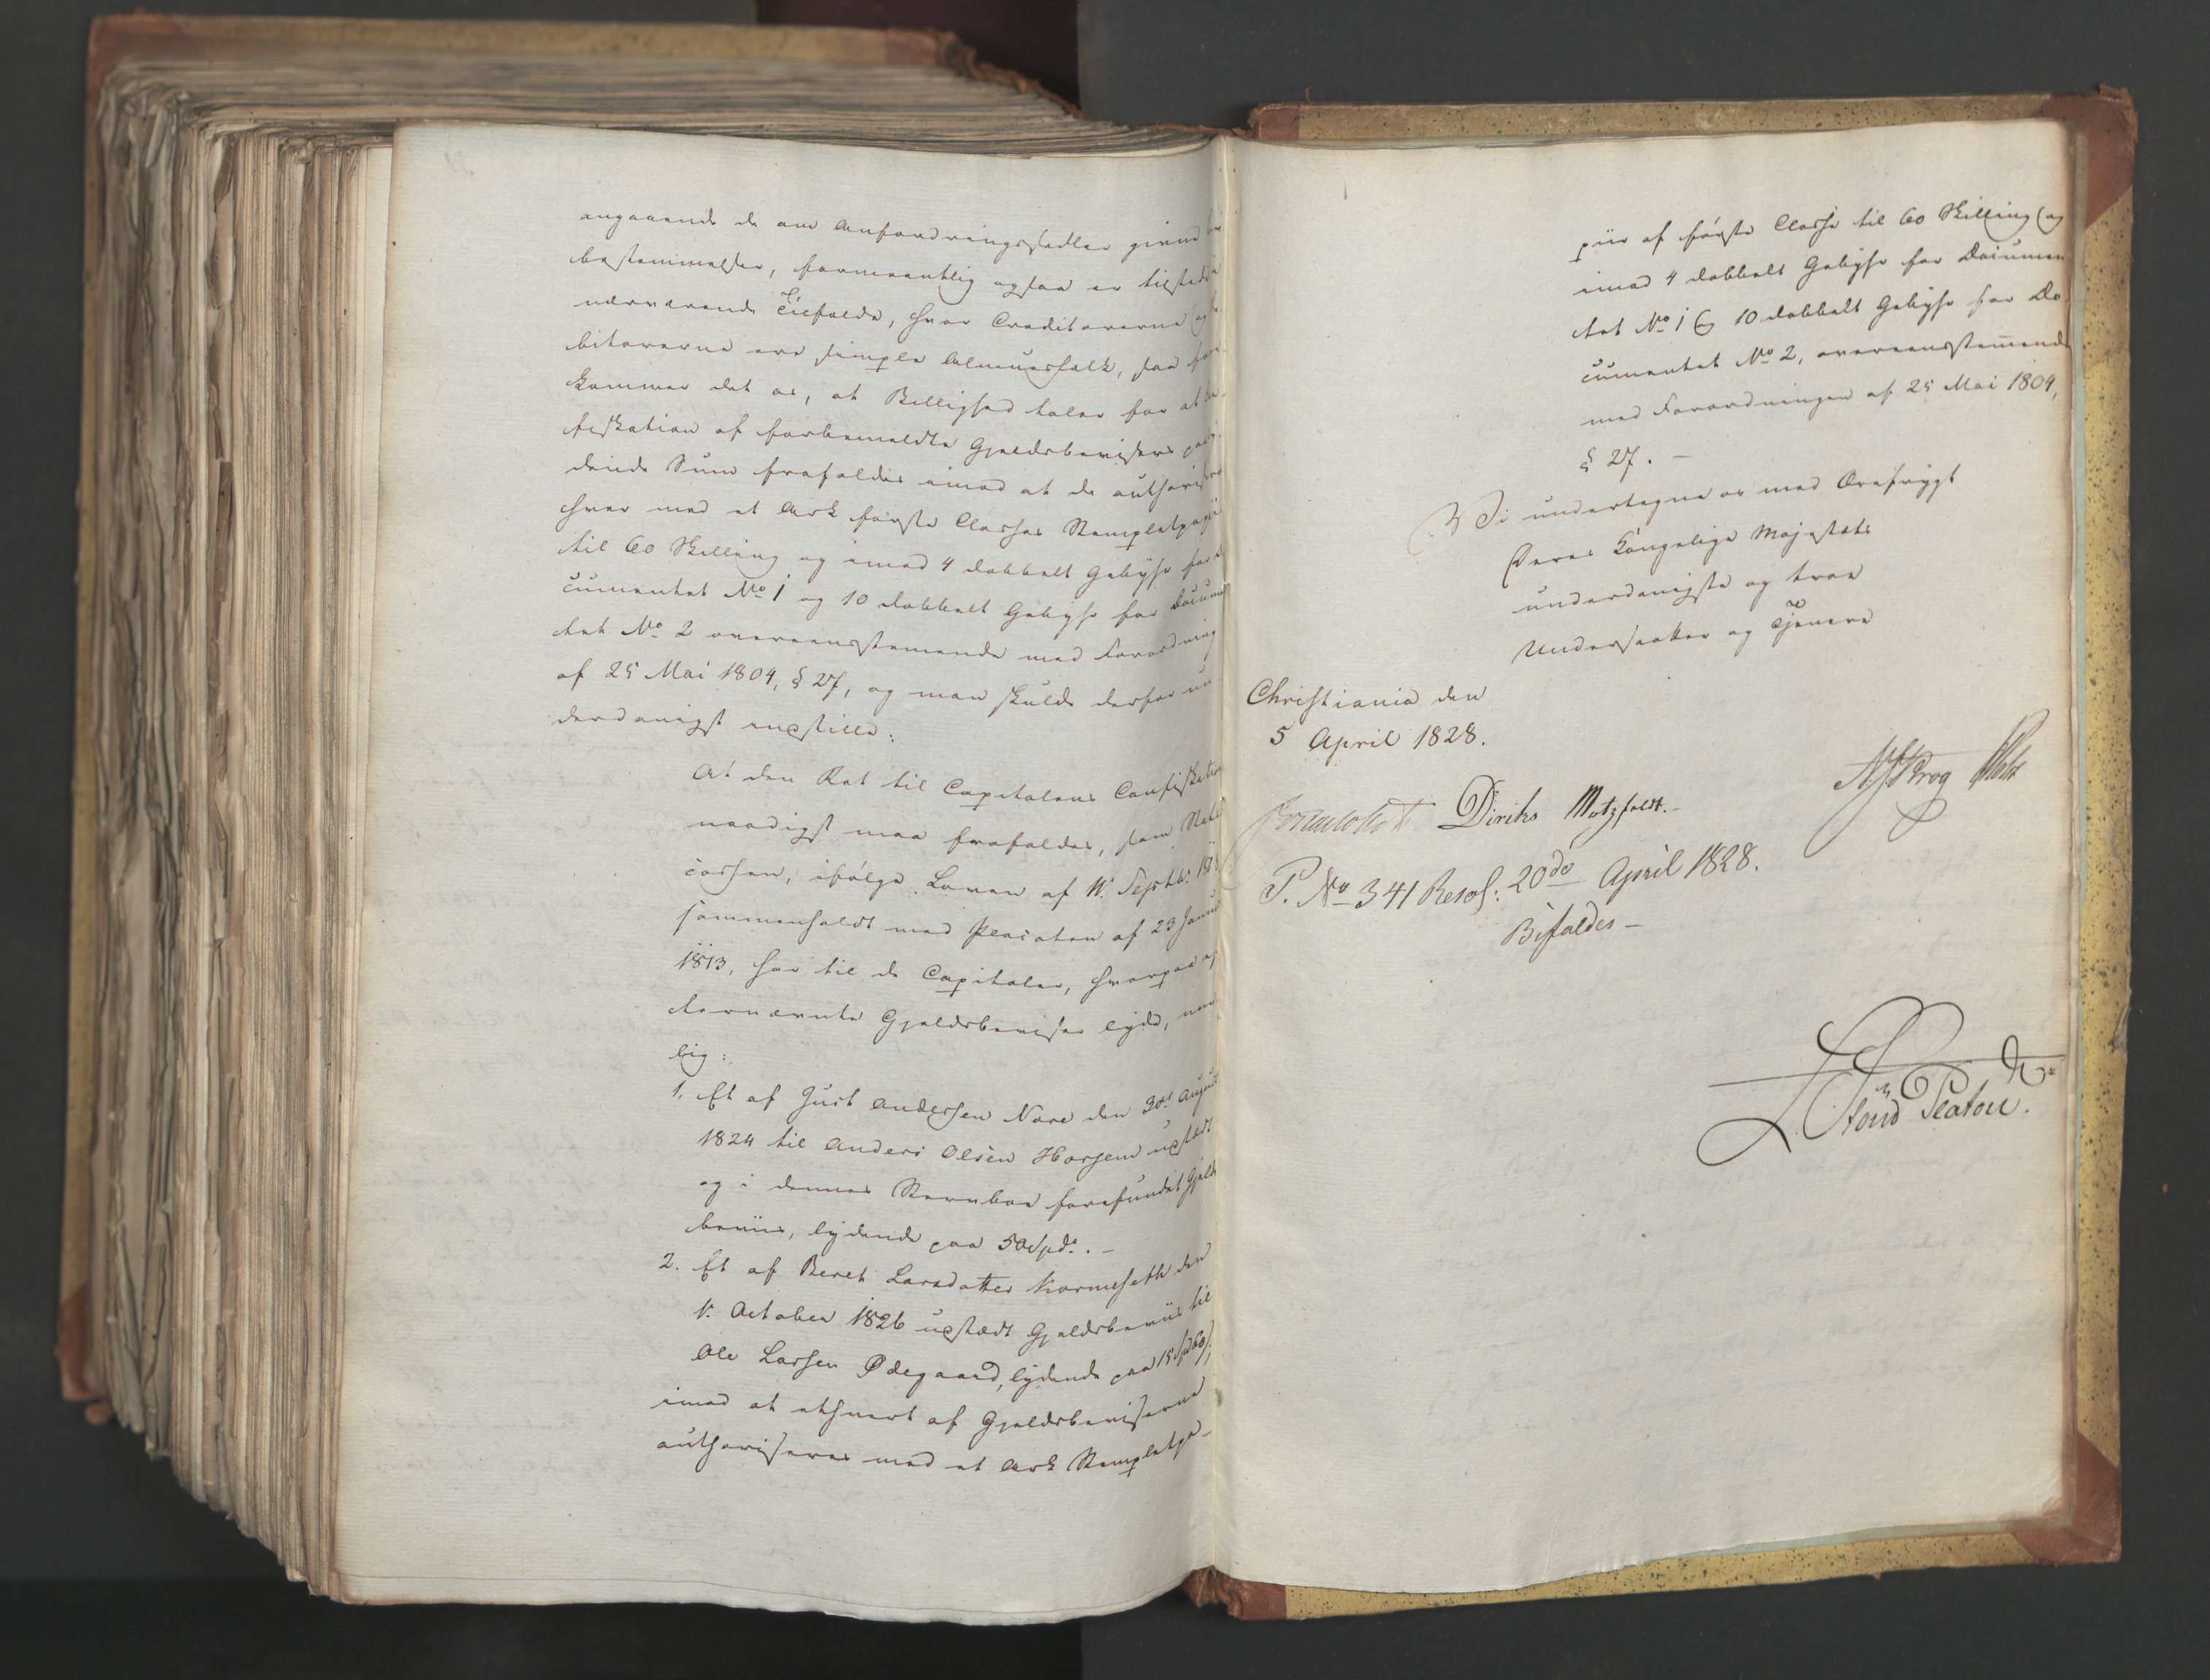 angaaende de om Anfordringssedler givne
bestemmelser, formeentlig ogsaa er tilstede i
nærværende Tilfælde, hvor Creditorerne og
bitorerne ere simple Almuesfolk, saa fore-
kommer det os, at Billighed taler for at Con-
fiskation af forbemeldte Gjeldsbevisers paaly-
dende Sum frafaldes imod at de authoriseres
hver med et Ark første Classes Stempletpapiir
til 60 Skilling og imod 4 dobbelt Gebyhr for
cumentet No 1 og 10 dobbelt Gebyhr for Documen
tet No 2 overeensstemende med Forordning
af 25 Mai 1804, § 27, og man skulde derfor un
derdanigst indstille:
At den Ret til Capitalens Confiskation
naadigst maa frafaldes, som Stats
cassen, ifølge Loven af 11. Septbr.
sammenholdt med Placaten af 23 Janua
1813, har til de Capitaler, hvorpaa ef
ternævnte Gjeldsbeviser lyde, nem
lig:
1. Et af Juct Andersen Nore den 30te August
1824 til Anders Olsen Horgem udstædt
og i dennes Stervboe forefundet Gjelds
beviis, lydende paa 50 Spd. –
2. Et af Beret Larsdatter Kornesæth den
1. October 1826 udstædt Gjeldsbeviis til
Ole Larsen Ødegaard, lydende paa 18 Spd 60
imod at ethvert af Gjeldsbeviserne
authoriseres med et Ark Stempletpa-
piir af første Classe til 60 Skilling og
imod 4 dobbelt Gebyhr for Documen
tet No 1 og 10 dobbelt Gebyhr for Do-
cumentet No 2, overeensstemende
med Forordningen af 25 Mai 1804,
§ 27. –
Vi undertegne os med Ærefrygt
Deres Kongelige Majestæts
underdanigste og troe
Undersaatter og Tjenere
Christiania den
5 April 1828.
Diriks Motzfeldt. –
Krog
P. No 341 Resol: 20de April 1828.
Bifaldes –
Platou.